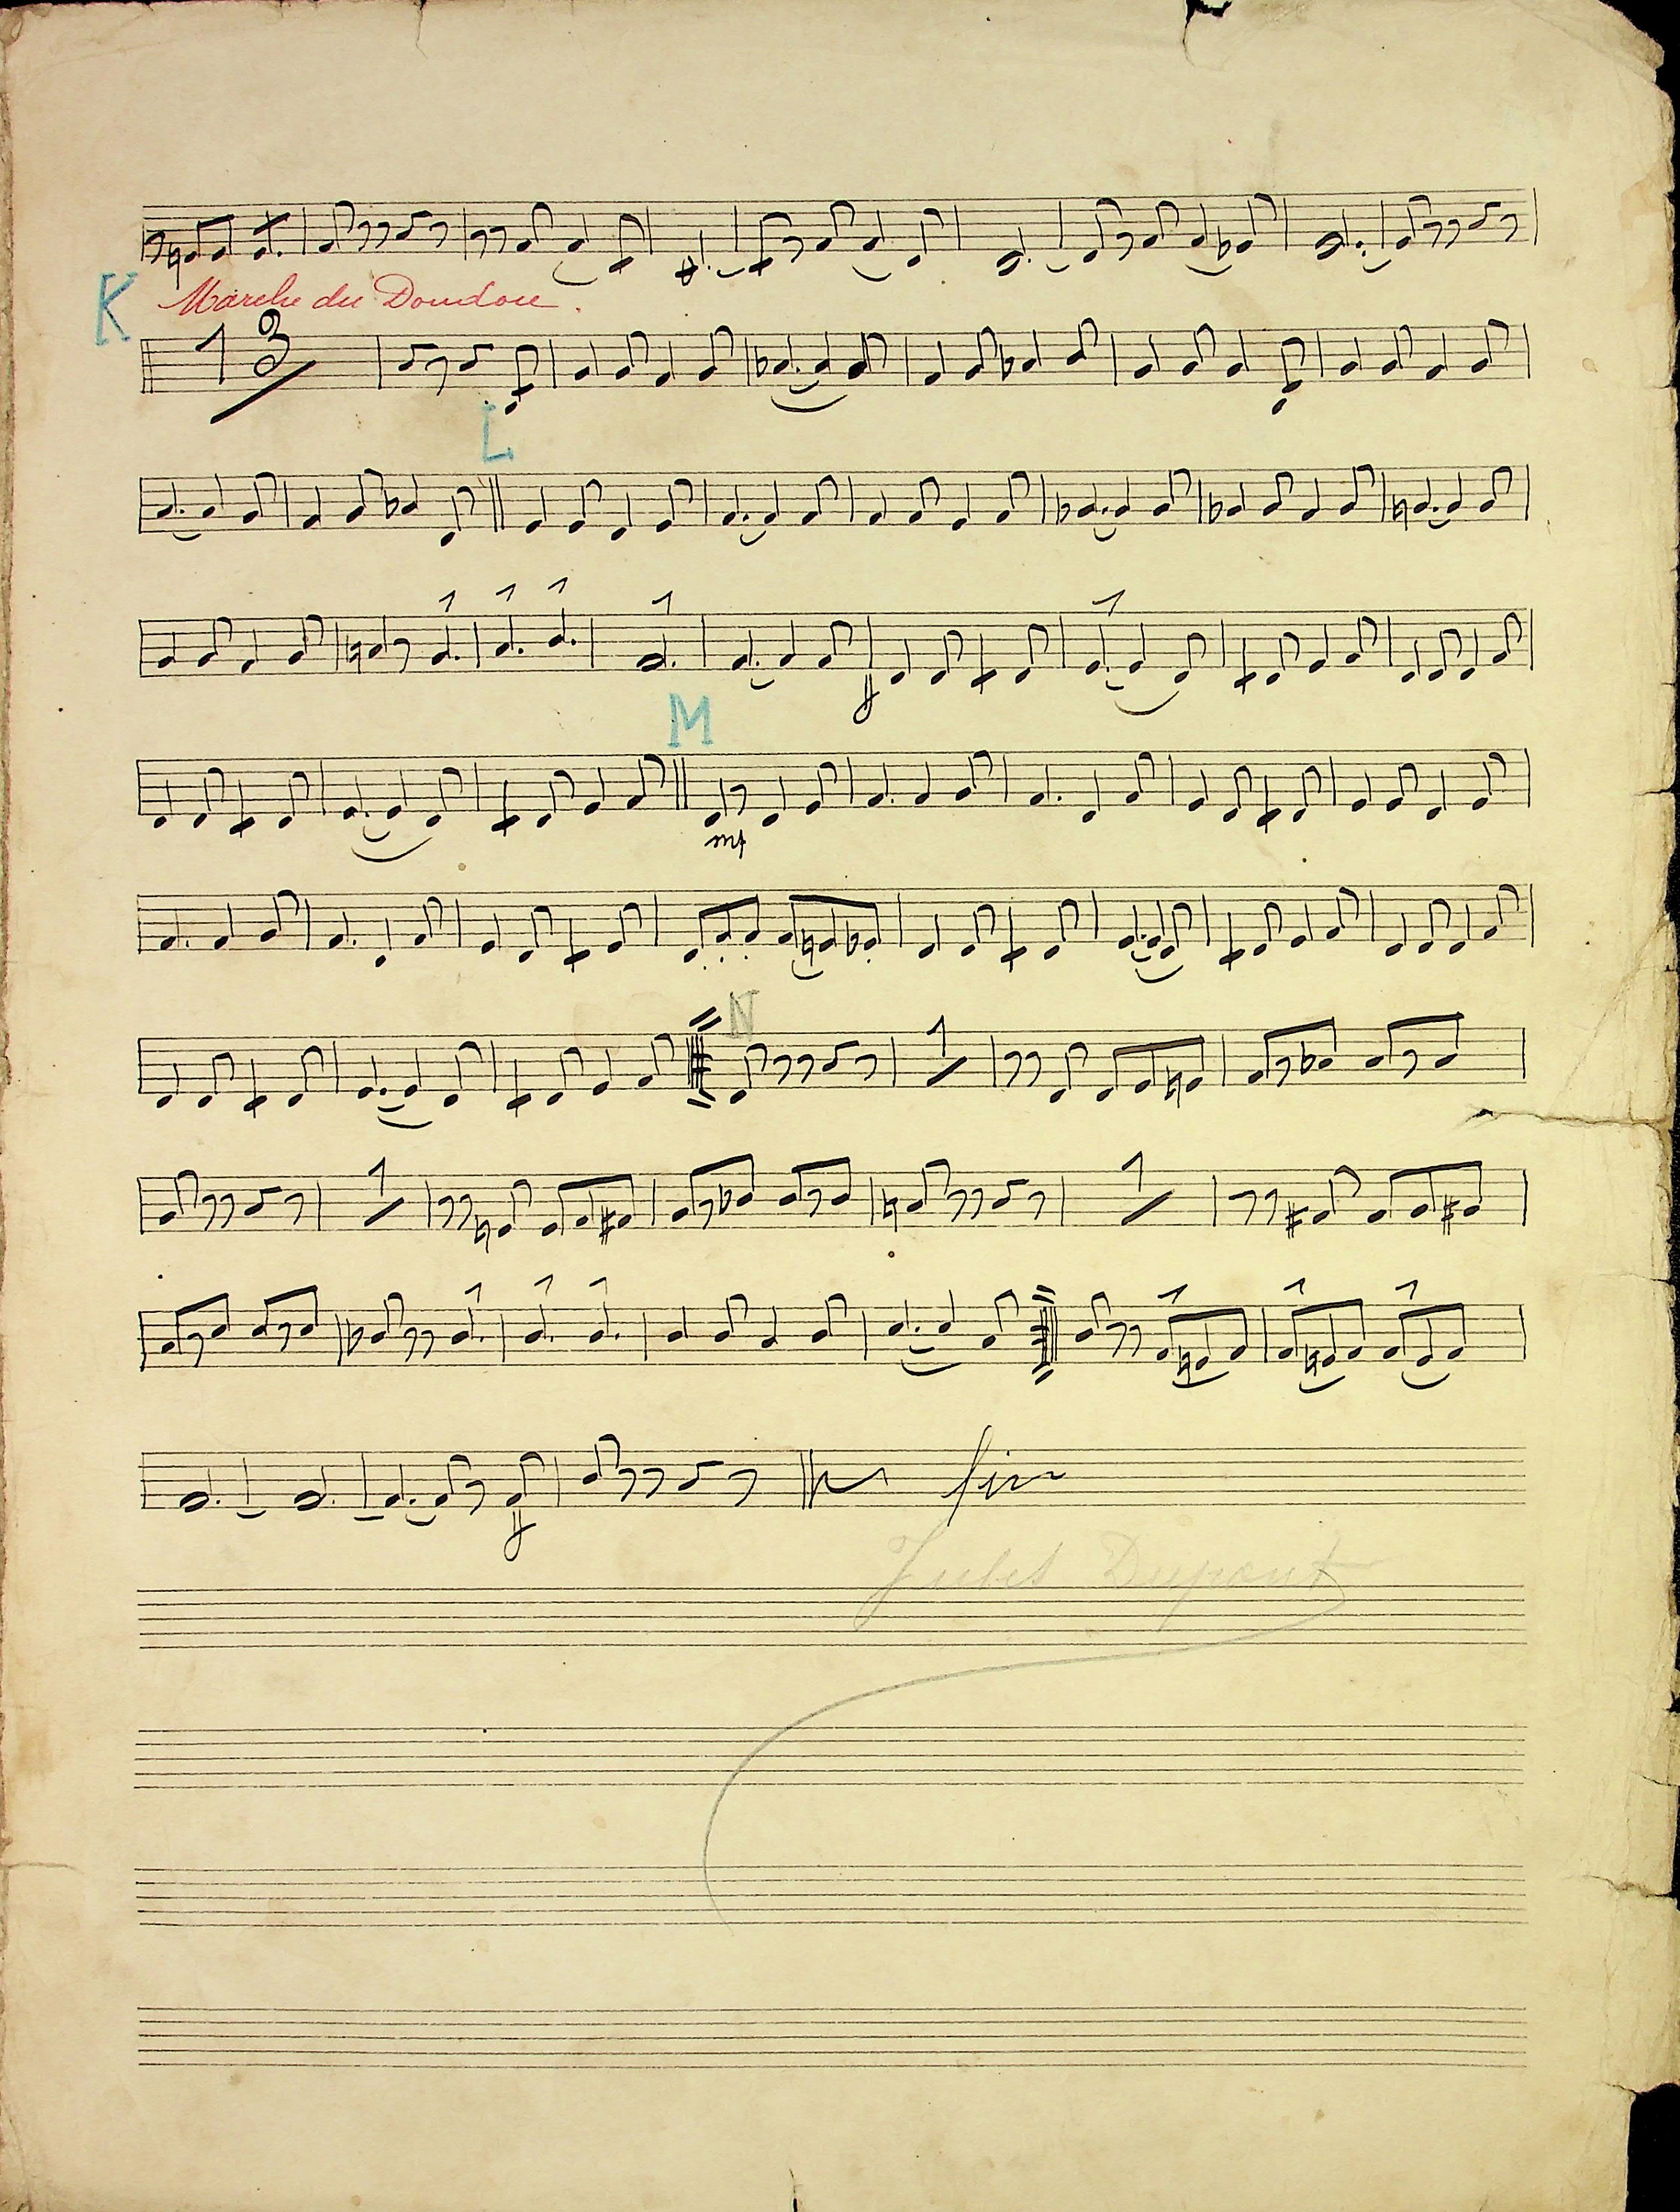 K Marche du Doudou.
13
L
M
mf
N
1
1
1
fin
Jules Dupont